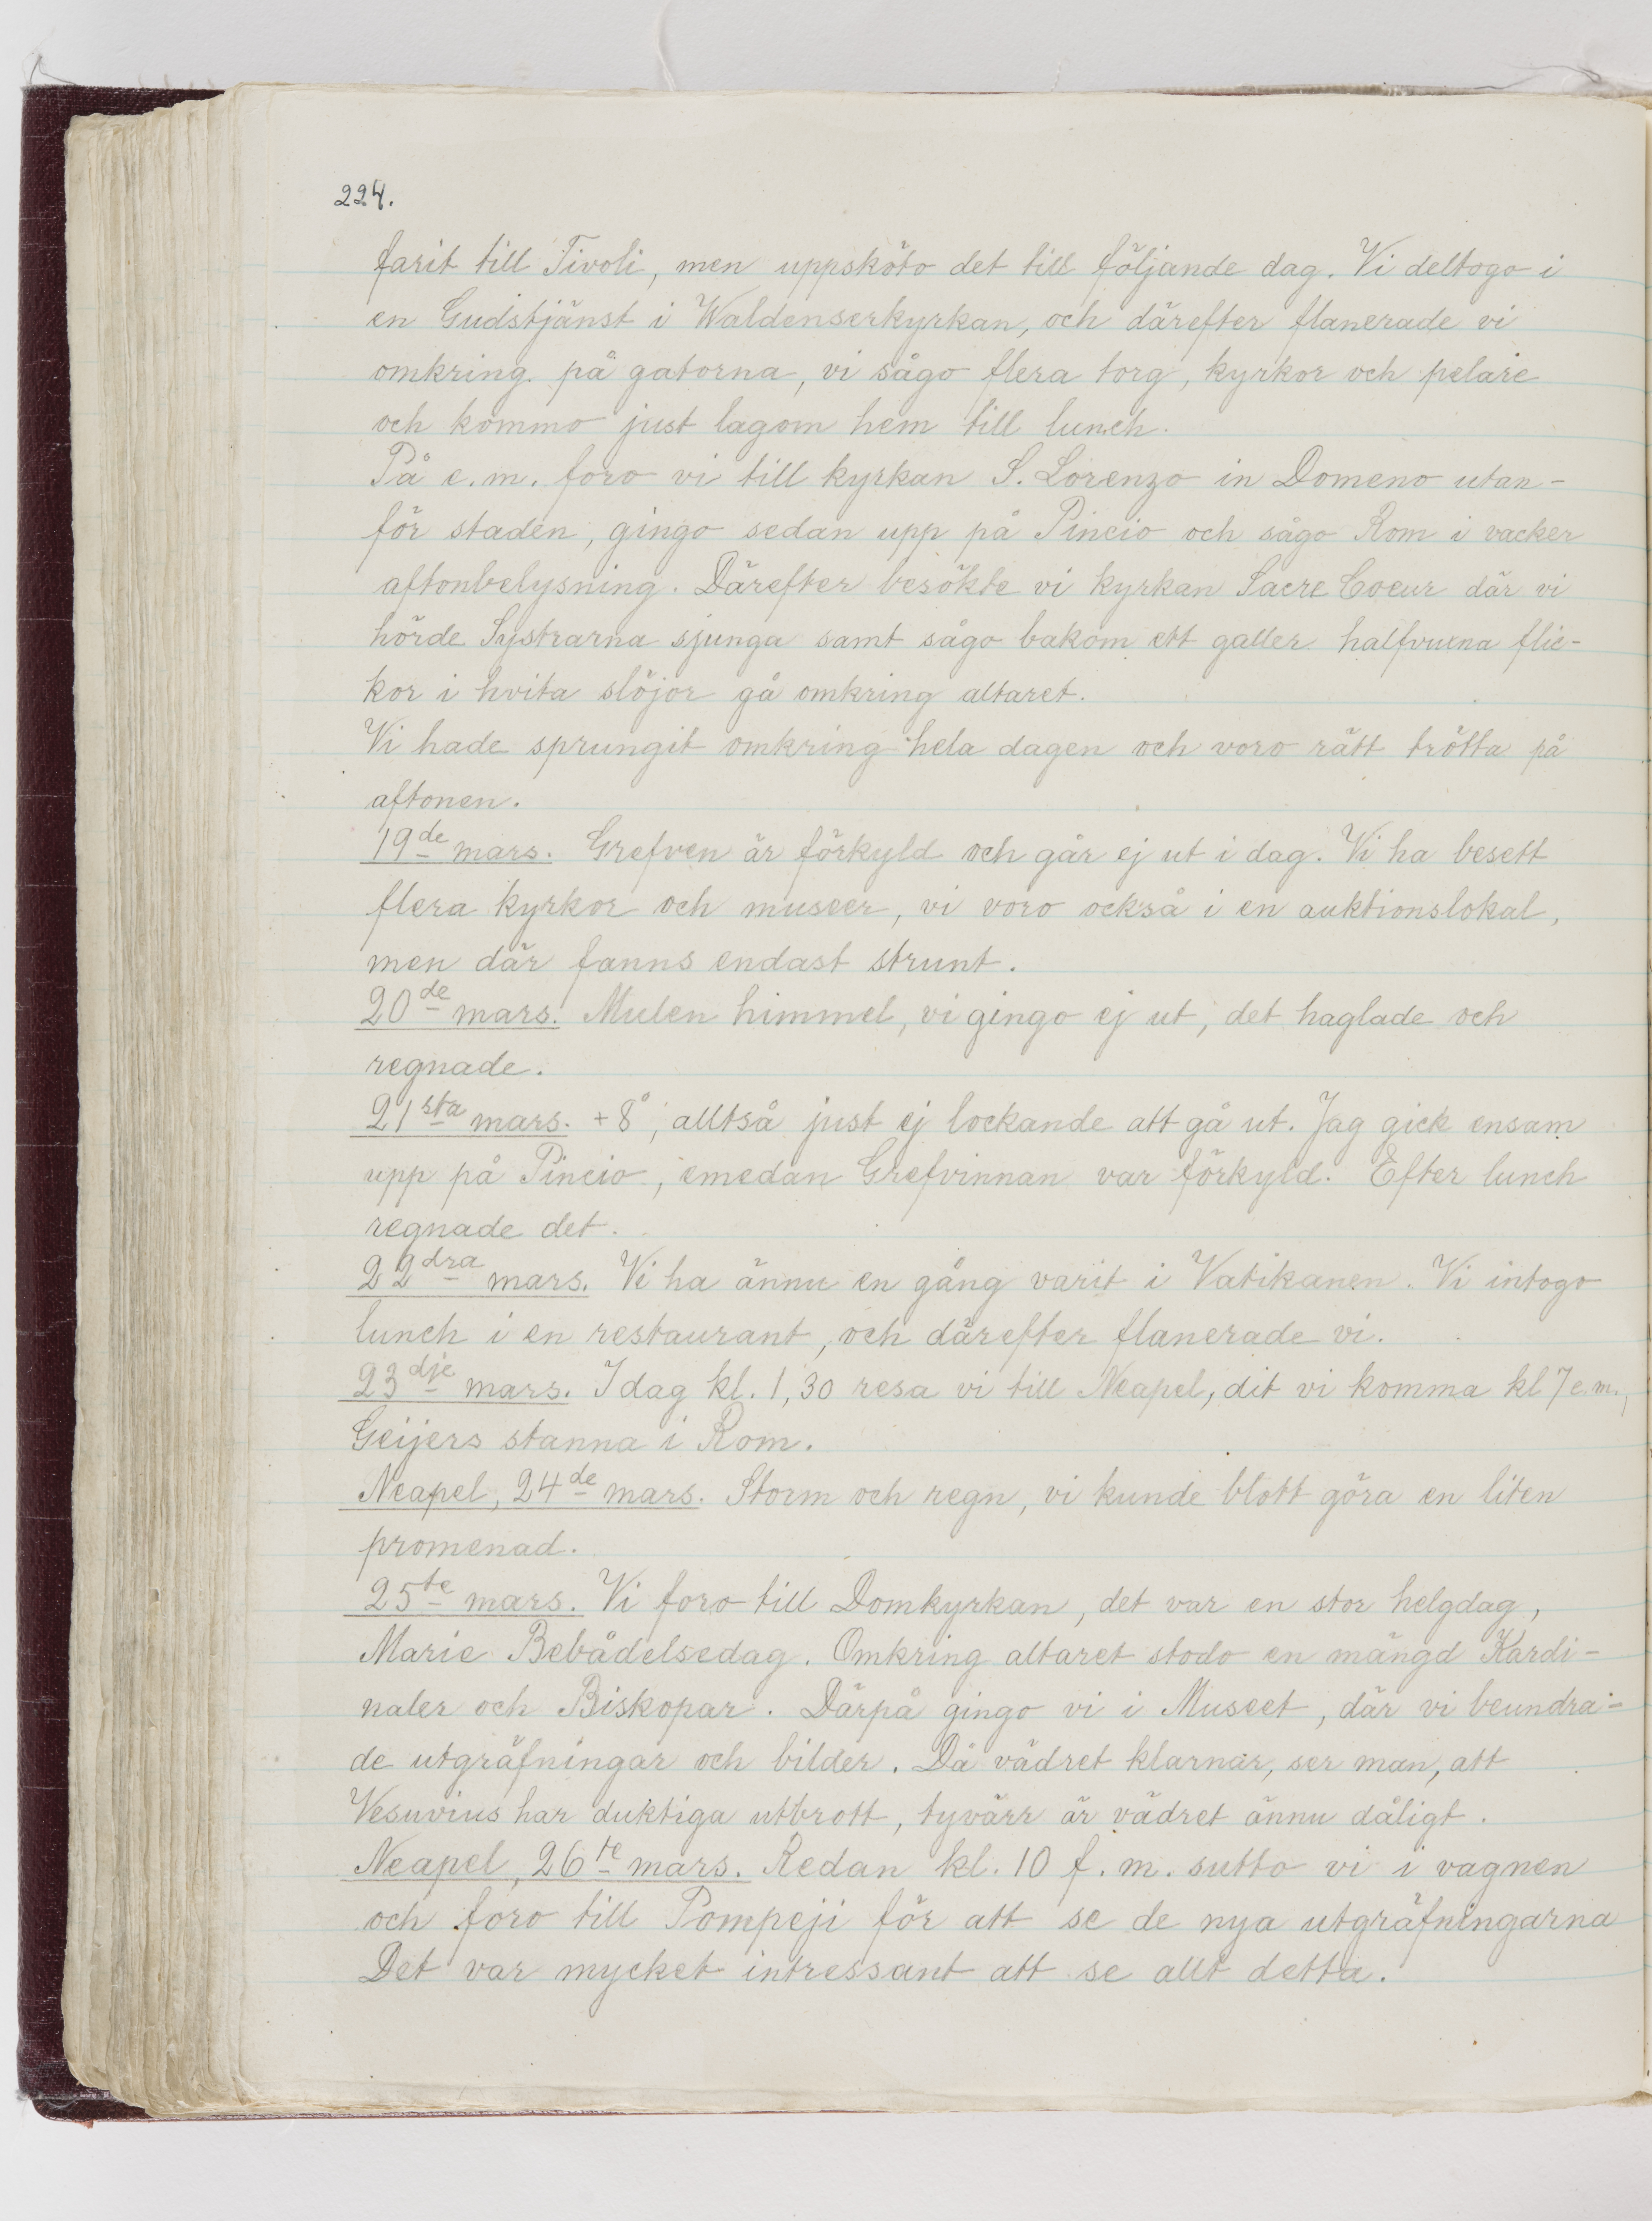 224.
farit till Tivoli, men uppsköto det till följande dag. Vi deltogo i
en Gudstjänst i Waldenserkyrkan, och därefter flanerade vi
omkring på gatorna, vi sågo flera torg, kyrkor och pelare
och kommo just lagom hem till lunch.
På e.m. foro vi till kyrkan S. Lorenzo in Domeno utan-
för staden, gingo sedan upp på Pincio och sågo Rom i vacker
aftonbelysning. Därefter besökte vi kyrkan Sacre Coeur där vi
hörde Systrarna sjunga samt sågo bakom ett galler halfvuxna flic-
kor i hvita slöjor gå omkring altaret.
Vi hade sprungit omkring hela dagen och voro rätt trötta på
aftonen.
19de mars. Grefven är förkyld och går ej ut i dag. Vi ha besett
flera kyrkor och museer, vi voro också i en auktionslokal,
men där fanns endast strunt.
20de mars. Mulen himmel, vi gingo ej ut, det haglade och
regnade.
21sta mars. +8°, alltså just ej lockande att gå ut. Jag gick ensam
upp på Pincio, emedan Grefvinnan var förkyld. Efter lunch
regnade det.
22dra mars. Vi ha ännu en gång varit i Vatikanen. Vi intogo
lunch i en restaurant, och därefter flanerade vi.
23dje mars. I dag kl. 1,30 resa vi till Neapel, dit vi komma kl 7 e.m.,
Geijers stanna i Rom.
Neapel, 24de mars. Storm och regn, vi kunde blott göra en liten
promenad.
25te mars. Vi foro till Domkyrkan, det var en stor helgdag,
Marie Bebådelsedag. Omkring altaret stodo en mängd Kardi-
naler och Biskopar. Därpå gingo vi i Museet, där vi beundra-
de utgräfningar och bilder. Då vädret klarnar, ser man, att
Vesuvius har duktiga utbrott, tyvärr är vädret ännu dåligt.
Neapel, 26te mars. Redan kl. 10 f.m. sutto vi i vagnen
och foro till Pompeji för att se de nya utgräfningarna
Det var mycket intressant att se allt detta.